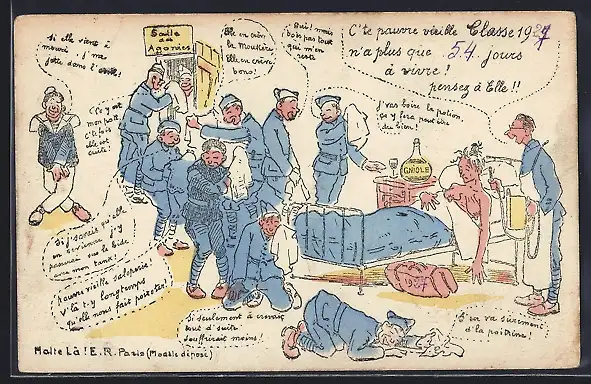 si elle vient à
mourir, j'me
jette dans l'
Salle
des
Agonies
Elle en crèv'
la
Elle en crèv'ra
bono!
Oui! mais
bois pas tout
qui m'en
reste
C'te pauvre vieille Classe 1927
n'a plus que 54 jours
à vivre!
pensez à Elle!!
Ça y est
mon pote
C'te fois
elle est
cuite!
J'vas boire la potion,
ça y fera peut être
du bien!
GNIOLE
Si j'savais qu'elle
en revienne j'y
passerai sur le bide
avec mon tank!
pauvre vieille saloperie!
v'là t-y longtemps
qu'elle nous fait poireoter!
1927
Si seulement à crevait
tout d'suite
souffrirait moins!
S'en va sûrement
d'la poitrine!
Halte Là! E.R. Paris (Modèle déposé)